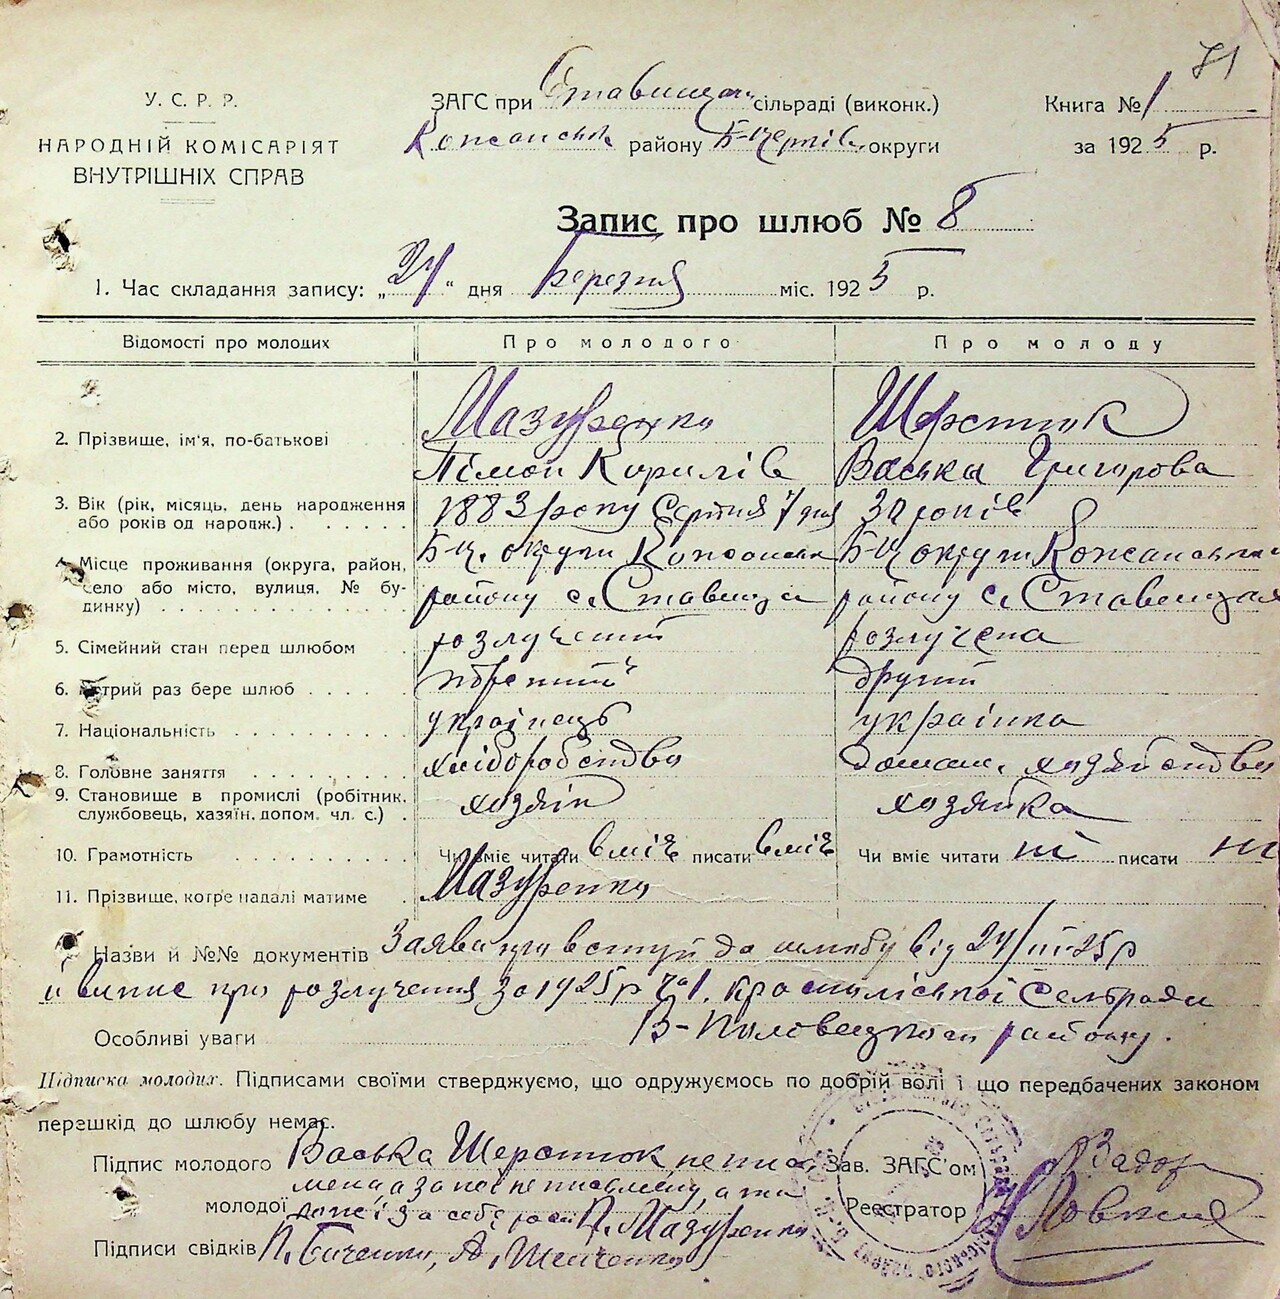 71
У. С. Р. Р.
НАРОДНІЙ КОМІСАРІЯТ
ВНУТРІШНІХ СПРАВ
ЗАГС при Ставищан. сільраді (виконк.)
Кожанськ району Б-Церків. округи
Книга № 1
за 1925 р.
Запис про шлюб № 8
1. Час складання запису: „24“ дня березня міс. 1925 р.
Відомості про молодих Про молодого Про молоду
2. Прізвище, ім'я, по-батькові
Мазуренко
Пімон Корилів
Шерстюк
Васька Григорова
3. Вік (рік, місяць, день народження
або років од народж.)
1883 року Серпня 7 дня
32 років
4. Місце проживання (округа, район,
село або місто, вулиця, № бу-
динку)
Б-Ц. округи Кожанськ
району с. Ставища
Б-Ц округи Кожанськ
району с. Ставища
5. Сімейний стан перед шлюбом розлучений розлучена
6. Котрий раз бере шлюб другий
7. Національність українець українка
8. Головне заняття хліборобство Домаш. хазяйство
9. Становище в промислі (робітник,
службовець, хазяїн, допом. чл. с.)
хозяїн хозяйка
10. Грамотність Чи вміє читати вміє писати вміє Чи вміє читати ні писати ні
11. Прізвище, котре надалі матиме Мазуренко
Назви й №№ документів Заява про вступ до шлюбу від 24/III-25 р
и випис про розлучення за 1925 р № 1. Сельради
Особливі уваги В-Половецького району.
Підписка молодих. Підписами своїми стверджуємо, що одружуємось по добрій волі і що передбачених законом
перешкід до шлюбу немає.
Підпис молодого Васька Шерстюк непись
мена а за неї неписьмену, а та
молодої кож і за себе росп П. Мазуренко
Підписи свідків А. Шевченко
Зав. ЗАГС'ом
Реєстратор